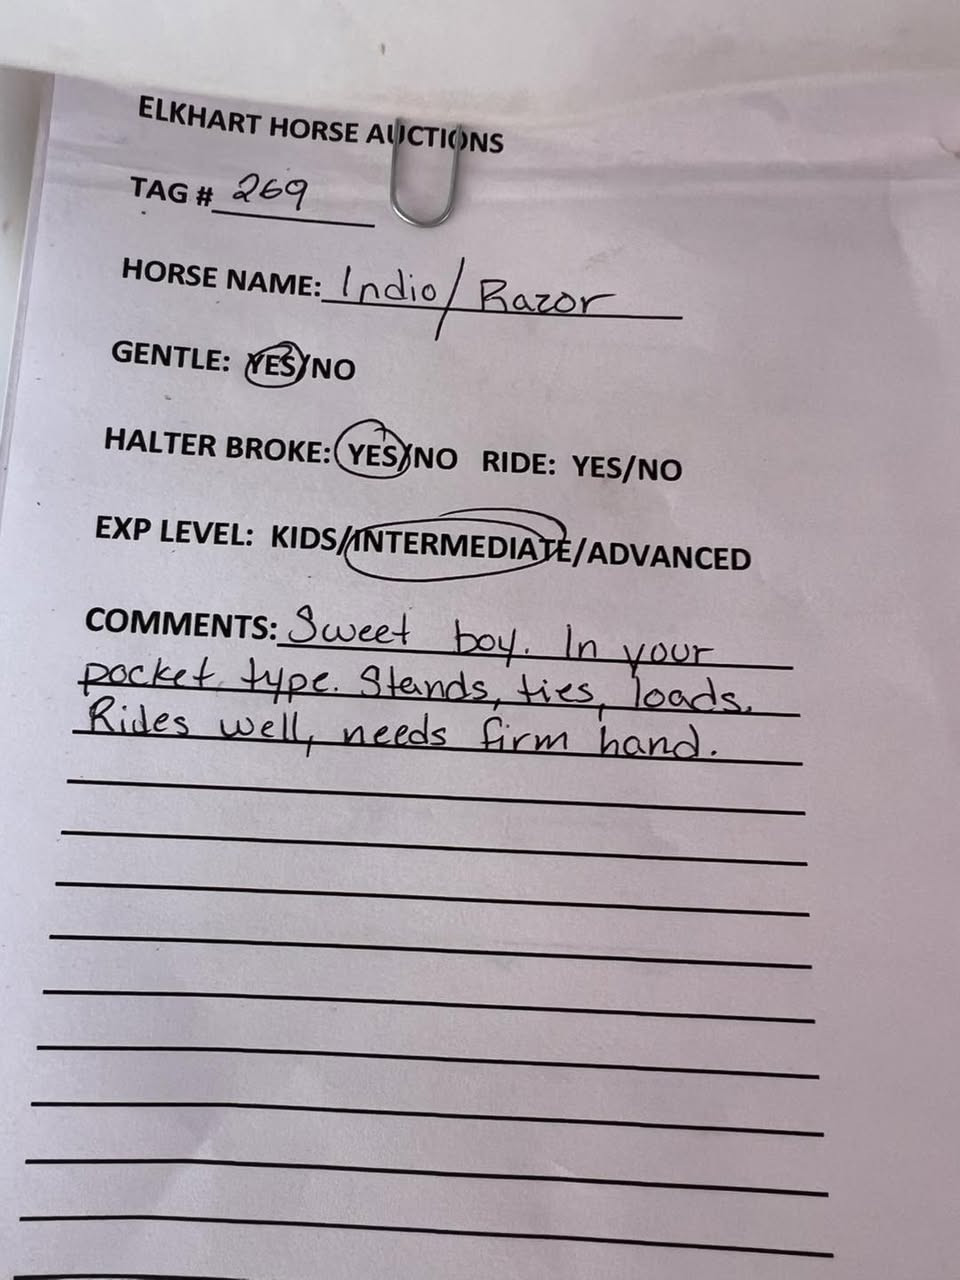 ELKHART HORSE AUCTIONS
TAG # 269
HORSE NAME: Indio/Razor
GENTLE: YES/NO
HALTER BROKE: YES/NO RIDE: YES/NO
EXP LEVEL: KIDS/INTERMEDIATE/ADVANCED
COMMENTS: Sweet boy. In your
pocket type. Stands, ties, loads.
Rides well, needs firm hand.